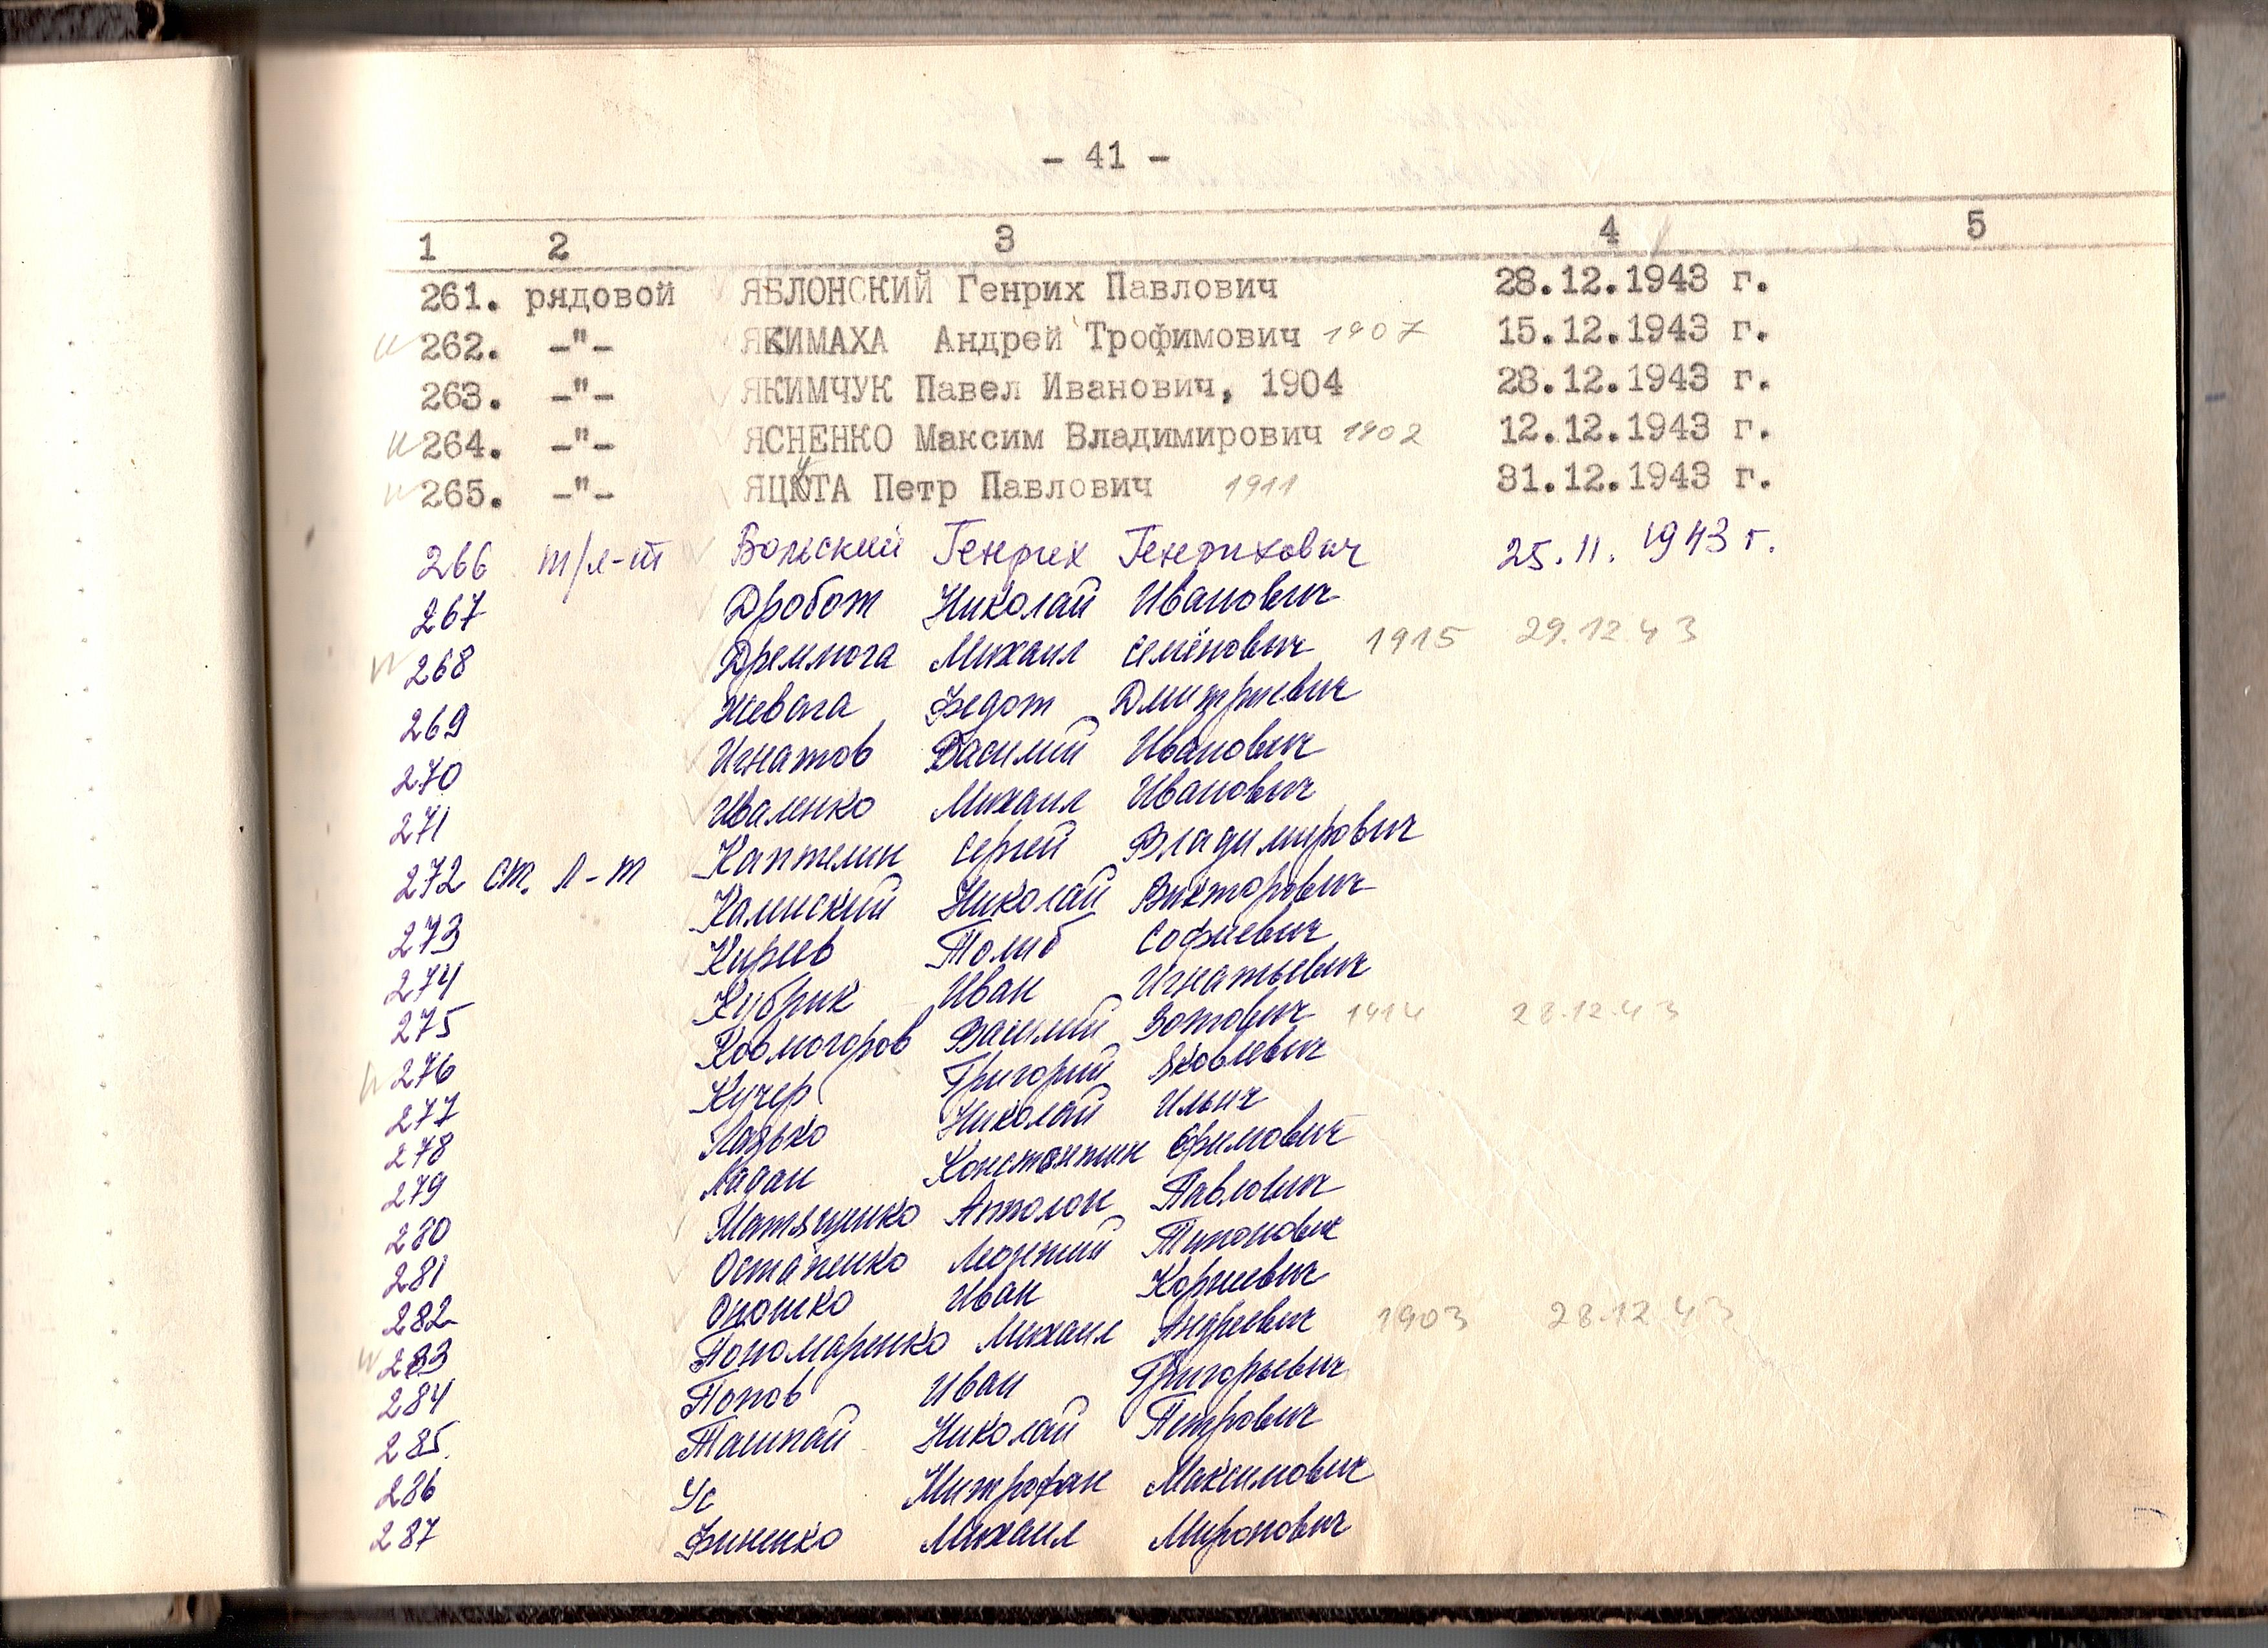 - 41 -
1 2 3 4 5
261. рядовой ЯБЛОНСКИЙ Генрих Павлович 28.12.1943 г.
262. -"- ЯКИМАХА Андрей Трофимович 1907 15.12.1943 г.
263. -"- ЯКИМЧУК Павел Иванович, 1904 28.12.1943 г.
264. -"- ЯСНЕНКО Максим Владимирович 1902 12.12.1943 г.
265. -"- ЯЦУТА Петр Павлович 1911 31.12.1943 г.
266 т/л-т Вольский Генрих Генрихович 25.11.1943 г.
267 Дробот Николай Иванович
268 Дремлюга Михаил Семёнович 1915 29.12.43
269 Жевага Федот Дмитриевич
270 Игнатов Василий Иванович
271 Иваленко Михаил Иванович
272 ст. л-т Каптелин Сергей Владимирович
273 Калинский Николай Викторович
274 Киреев Толиб Софиевич
275 Кубрик Иван Игнатьевич
276 Василий Зотович 1914 28.12.43
277 Кучер Григорий Яковлевич
278 Лазько Николай Ильич
279 Ладан Константин Ефимович
280 Матященко Антолон Павлович
281 Остапенко Леонтий Тихонович
282 Опошко Иван Корнеевич
283 Пономаренко Михаил Андреевич 1903 28.12.43
284 Попов Иван Григорьевич
285. Ташпай Николай Петрович
286 Ус Митрофан Максимович
287 Финенко Михаил Миронович